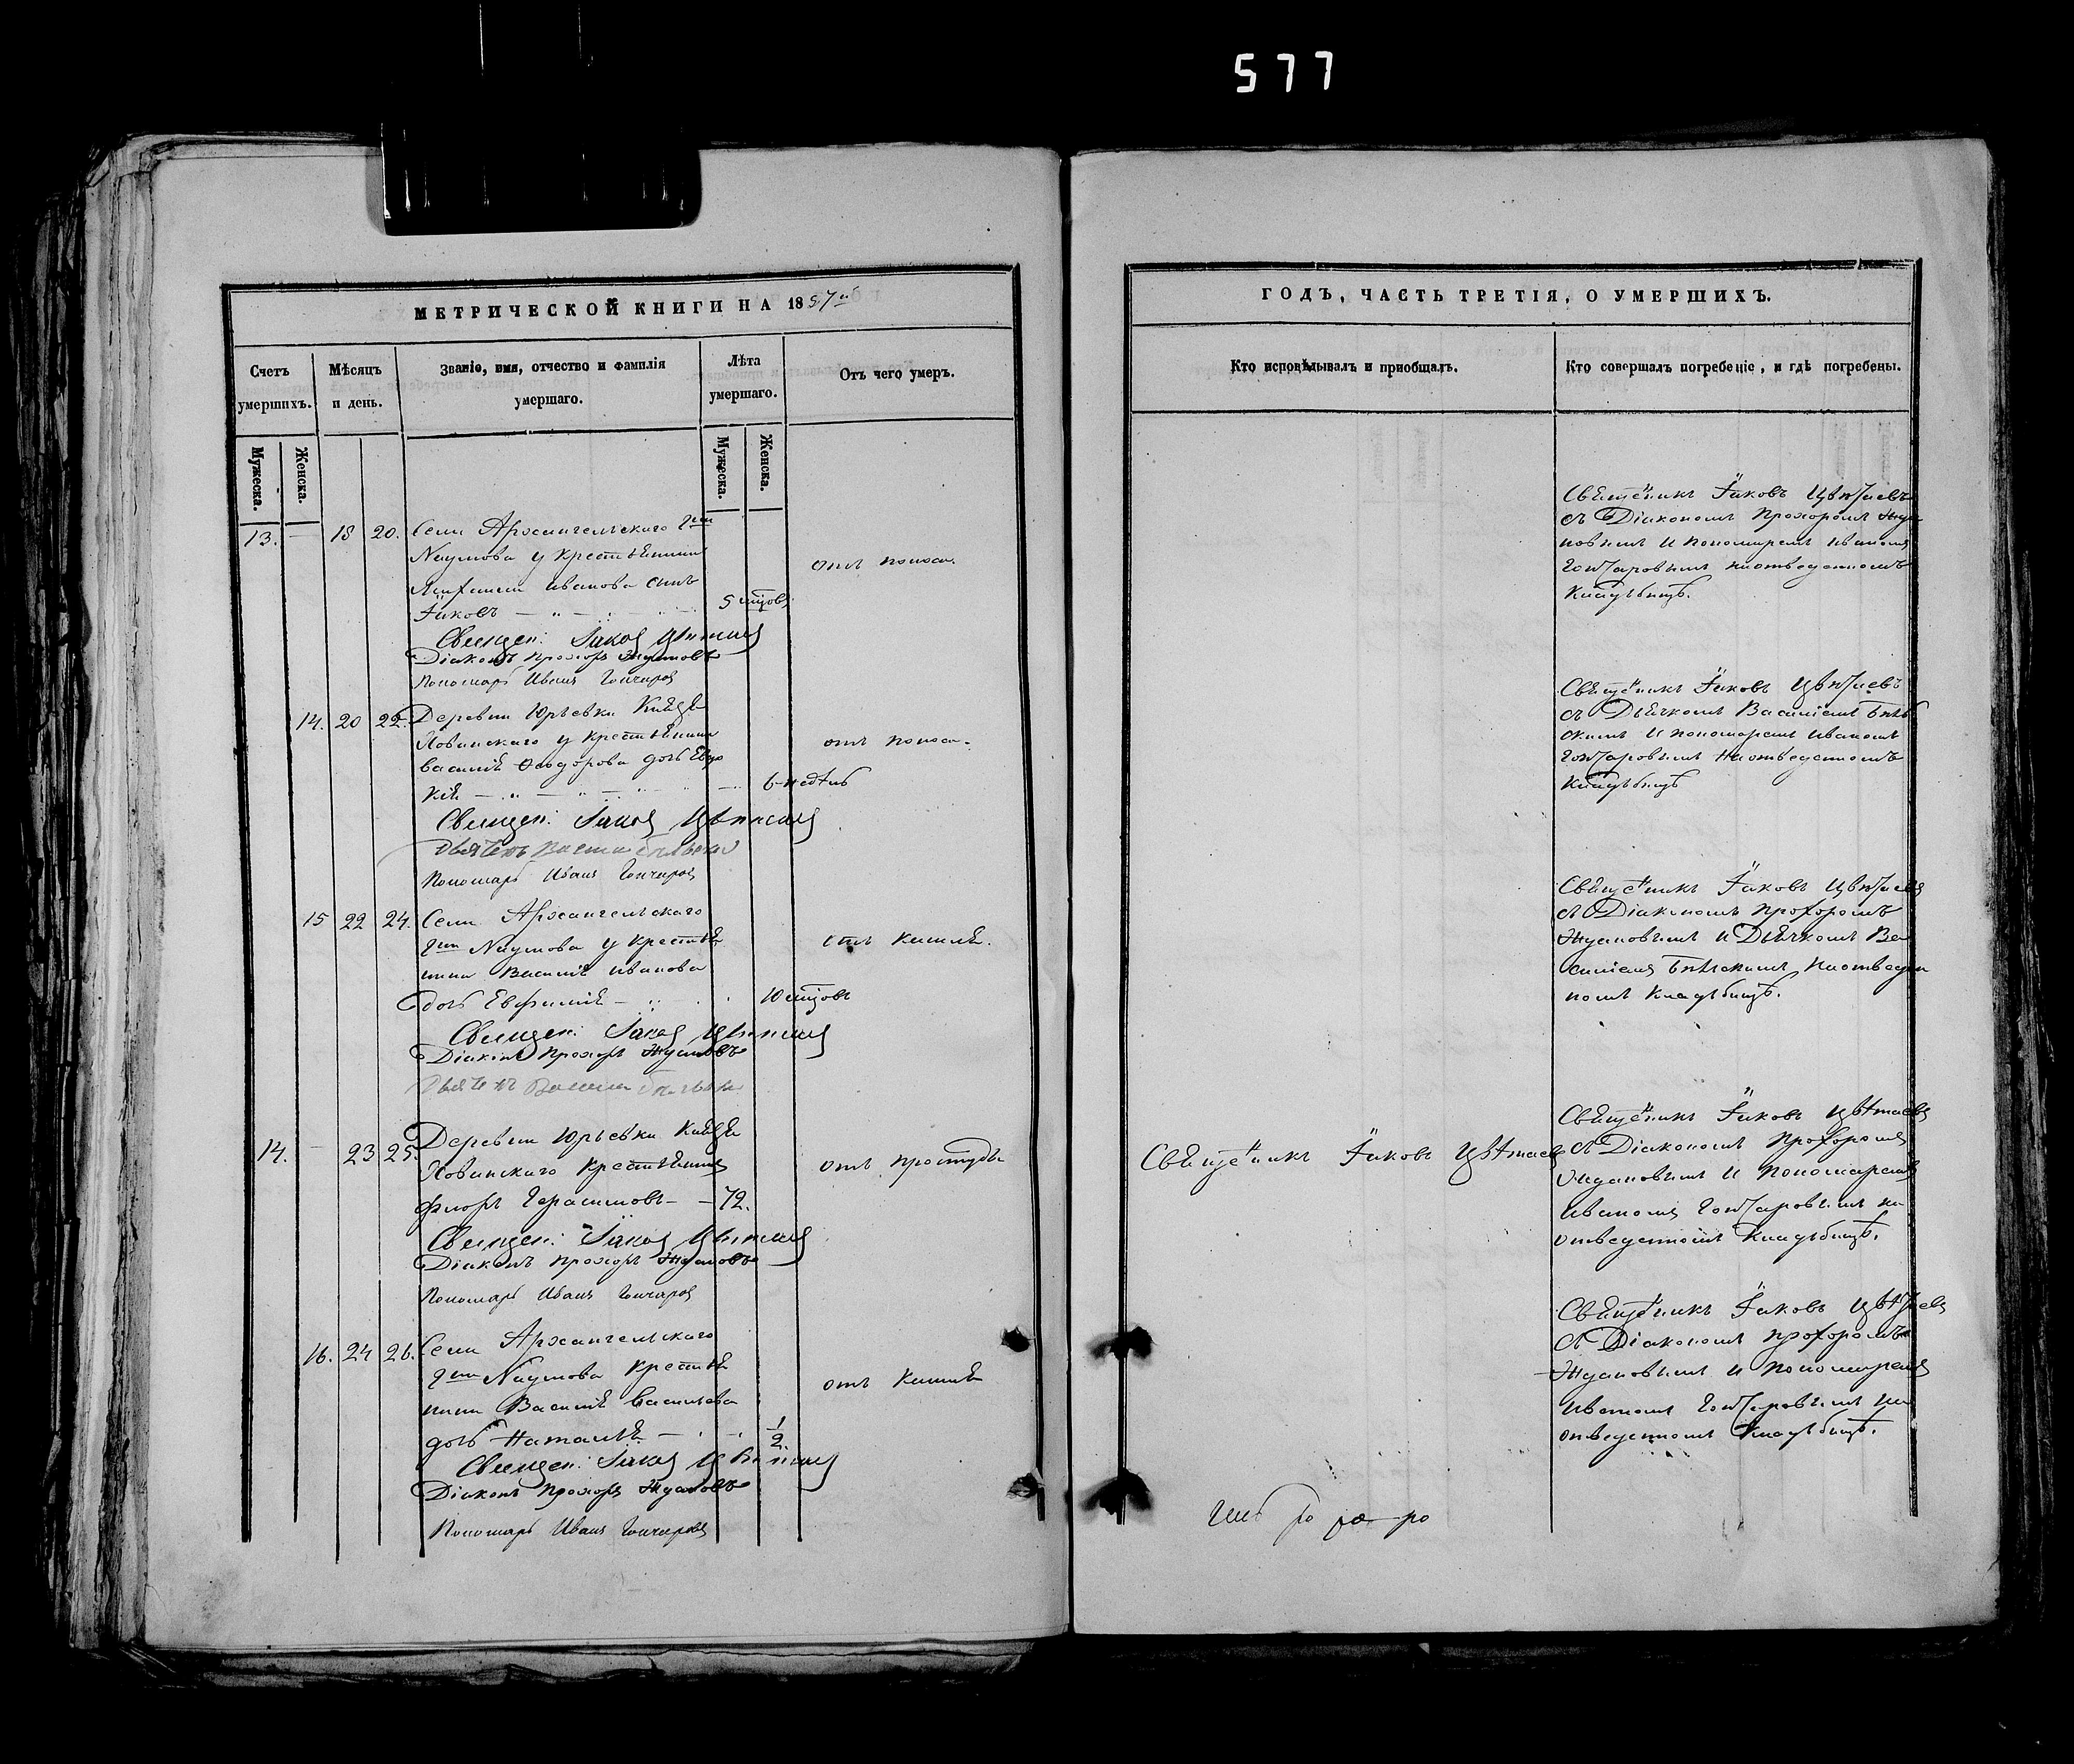 577
МЕТРИЧЕСКОЙ КНИГИ НА 1857й
Счетъ умершихъ.
Мѣсяцъ и день.
Званіе, имя, отчество и фамилія умершаго.
Лѣта умершаго.
Отъ чего умеръ.
Мужеска.
Женска.
Мужеска.
Женска.
13. — 18 20. Села Архангельскаго
Наумова у крестьянина
Иванова сынъ
Іаковъ — 5 мцовъ
отъ поноса.
Священ: Іаковъ Цвѣтаевъ
Діаконъ Прохоръ Ждановъ
Пономарь Иванъ Гончаровъ
14. 20 22. Деревни Юрьевки Князя
Хованскаго у крестьянина
Василія Ѳеодорова дочь Евдо
кія — 6 недѣль
отъ поноса.
Священ: Іаковъ Цвѣтаевъ
Дьячекъ
Пономарь Иванъ Гончаровъ
15 22 24. Села Архангельскаго
Наумова у крестья
нина Василія Иванова
дочь Евфимія — 10 мцовъ
отъ кашля.
Священ: Іаковъ Цвѣтаевъ
Діаконъ Прохоръ Ждановъ
Дьячекъ
14. — 23 25. Деревни Юрьевки Князя
Хованскаго крестьянинъ
Флоръ Герасимовъ — 72.
отъ простуды
Священ: Іаковъ Цвѣтаевъ
Діаконъ Прохоръ Ждановъ
Пономарь Иванъ Гончаровъ
16. 24 26. Села Архангельскаго
Наумова крестья
нина Василія Васильева
дочь Наталія — 1/2.
отъ кашля
Священ: Іаковъ Цвѣтаевъ
Діаконъ Прохоръ Ждановъ
Пономарь Иванъ Гончаровъ
ГОДЪ, ЧАСТЬ ТРЕТІЯ, О УМЕРШИХЪ.
Кто исповѣдывалъ и пріобщалъ.
Кто совершалъ погребеніе, и гдѣ погребены.
Священникъ Іаковъ Цвѣтаевъ
съ Діакономъ Прохоромъ Жда
новымъ и пономаремъ Иваномъ
Гончаровымъ на отведенномъ
кладьбищѣ.
Священникъ Іаковъ Цвѣтаевъ
съ Дьячкомъ Василіемъ Бѣль
скимъ и пономаремъ Иваномъ
Гончаровымъ на отведенномъ
кладьбищѣ
Священникъ Іаковъ Цвѣтаевъ
съ Діакономъ Прохоромъ
Ждановымъ и Дьячкомъ Ва
силіемъ Бѣльскимъ на отведен
номъ кладьбищѣ.
Священникъ Іаковъ Цвѣтаевъ
Священникъ Іаковъ Цвѣтаевъ
съ Діакономъ Прохоромъ
Ждановымъ и пономаремъ
Иваномъ Гончаровымъ на
отведенномъ кладьбищѣ.
Священникъ Іаковъ Цвѣтаевъ
съ Діакономъ Прохоромъ
Ждановымъ и пономаремъ
Иваномъ Гончаровымъ на
отведенномъ кладьбищѣ.